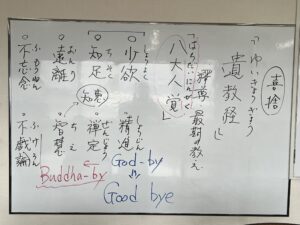 喜捨
「ゆいきょうぎょう
遺教経」
釋尊 最期の教え
「はちだいにんがく
八大人覚」
しょうよく
「○少欲
ちそく
○知足
おんり
○遠離
ふもうねん
○不忘念
しょうじん
○精進
ぜんじょう
○禅定
ちえ
○智慧
ふけろん
○不戯論
知恵
God-by
Good bye
Buddha-by